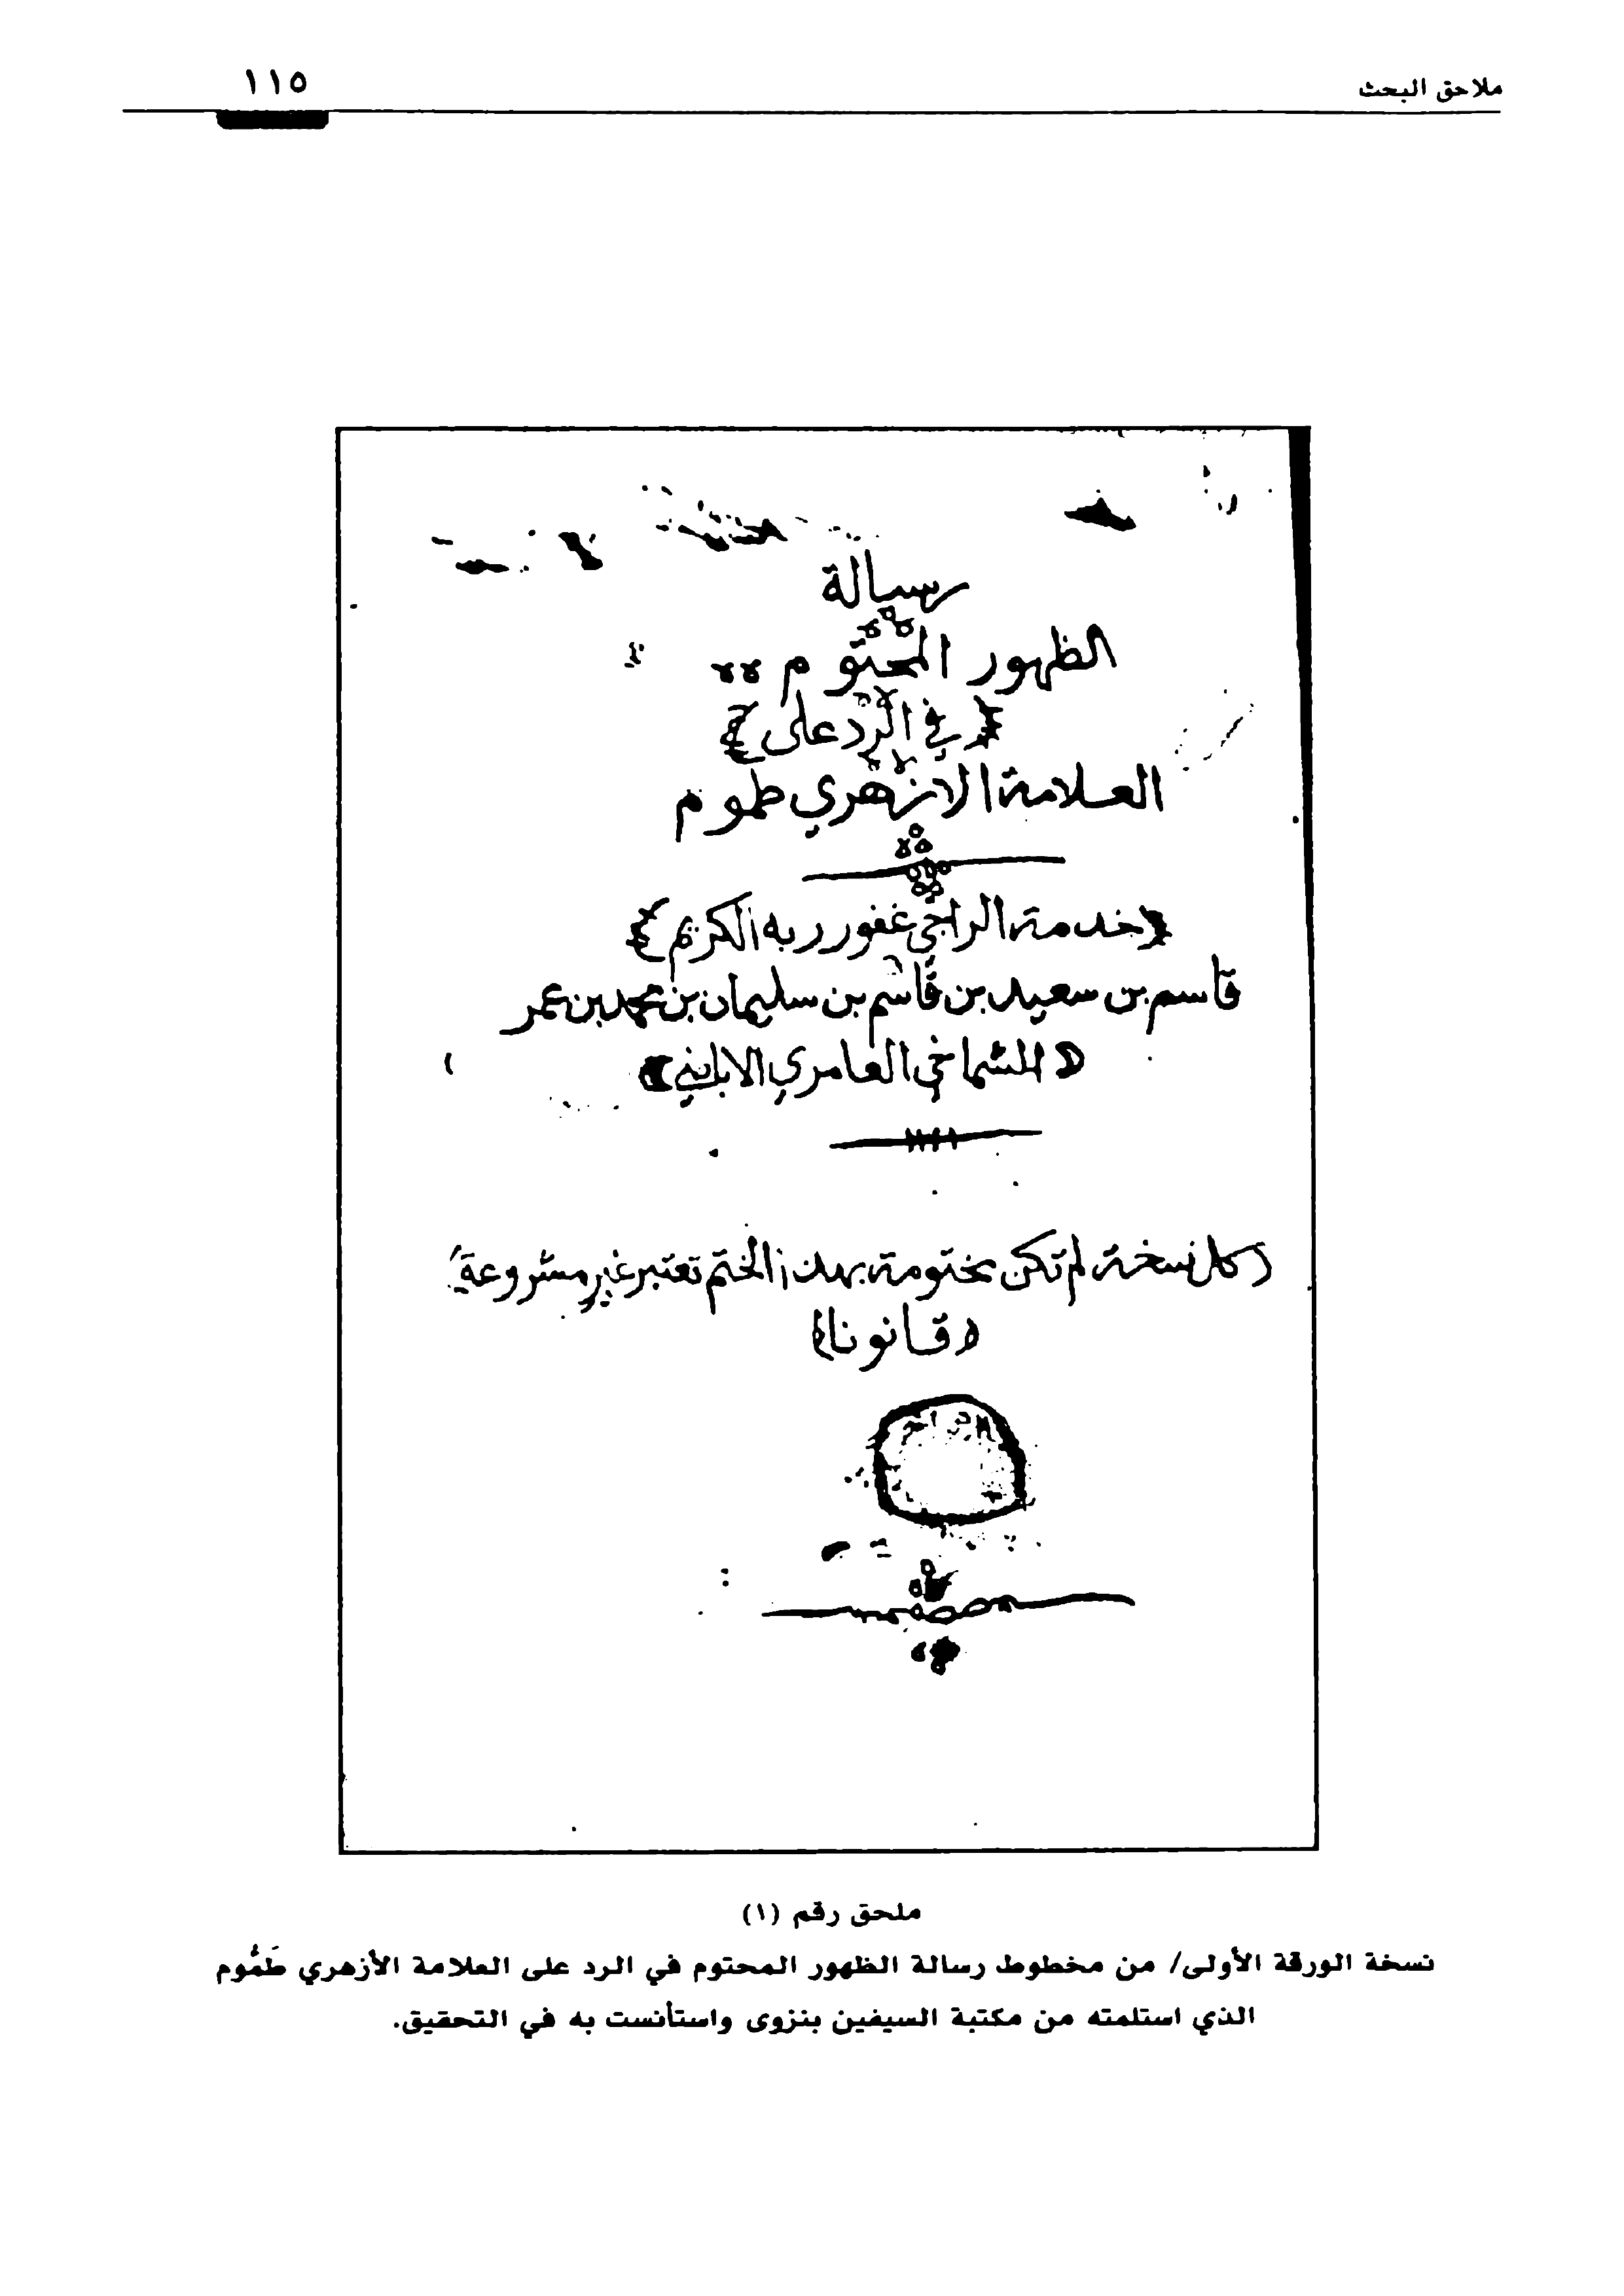 ملاحق البحث
١١٥
رسالة
الظهور المحتوم
﴿في الرد على﴾
العلامة الازهري طموم
﴿خدمة الراجي غفور ربه الكريم﴾
قاسم بن سعيد بن قاسم بن سليمان بن محمد بن عمر
(الشماخي العامري الاباضي)
(كل نسخة لم تكن مختومة بهذا الختم تعتبر غير مشروعة
(قانونا)
ملحق رقم (١)
نسخة الورقة الأولى/ من مخطوط رسالة الظهور المحتوم في الرد على العلامة الأزهري طَمُّوم
الذي استلمته من مكتبة السيفين بنزوى واستأنست به في التحقيق.